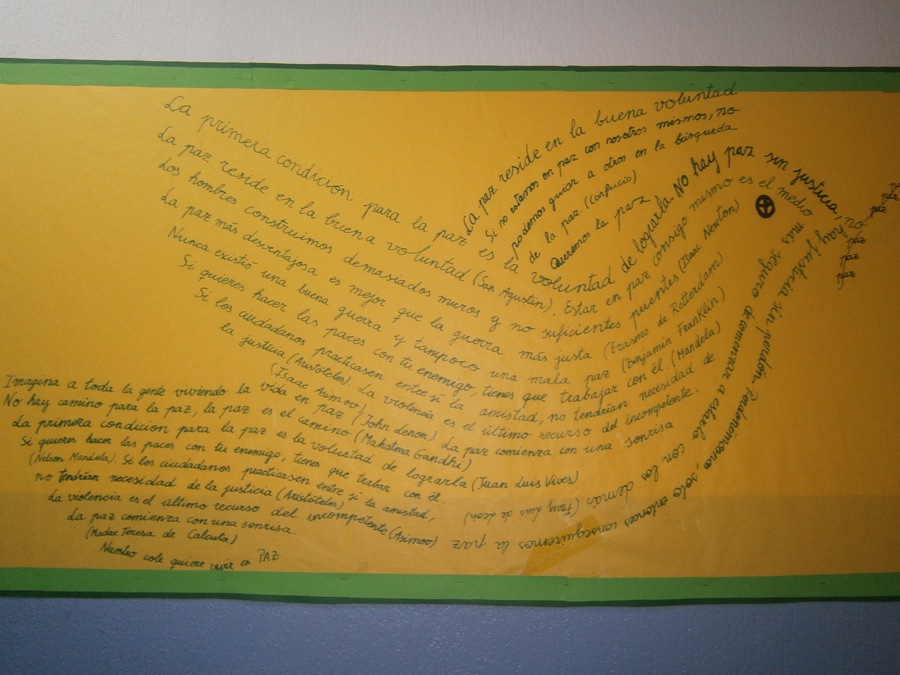 La paz reside en la buena voluntad
Si no estamos en paz con nosotros mismos, no
podemos guiar a otros en la búsqueda
de la paz. (Confucio)
Queremos la paz
La primera condición para la paz es la voluntad de lograrla No hay paz sin justicia, no hay justicia sin perdón. Perdonémonos, sólo entonces conseguiremos la paz
La paz reside en la buena voluntad (San Agustín). Estar en paz consigo mismo es el medio más seguro de comenzar a estarlo con los demás (Fray Luis de León)
Los hombres construimos demasiados muros y no suficientes puentes (Isaac Newton)
La paz más desventajosa es mejor que la guerra más justa (Erasmo de Rotterdam)
Nunca existió una buena guerra y tampoco una mala paz (Benjamin Franklin)
Si quieres hacer las paces con tu enemigo, tienes que trabajar con él. (Mandela)
Si los ciudadanos practicasen entre si la amistad, no tendrían necesidad de
la justicia (Aristóteles). La violencia es el último recurso del incompetente.
(Isaac Asimov) La paz comienza con una sonrisa
paz
paz
paz
paz
paz
paz
Imagina a toda la gente viviendo la vida en paz (John Lenon)
No hay camino para la paz, la paz es el camino (Mahatma Gandhi)
La primera condicion para la paz es la volustad de lograrla (Juan Luis Vives)
Si quieres hacer las paces con tu enemigo, tienes que trabar con él.
(Nelson Mandela). Si los ciudadanos practicasen entre si la amistad,
no tendrían necesidad de la justicia (Aristóteles)
La violencia es el último recurso del incompetente (Asimov)
La paz comienza con una sonrisa.
(Madre Teresa de Calcuta)
Nuestro cole quiere vivir en PAZ